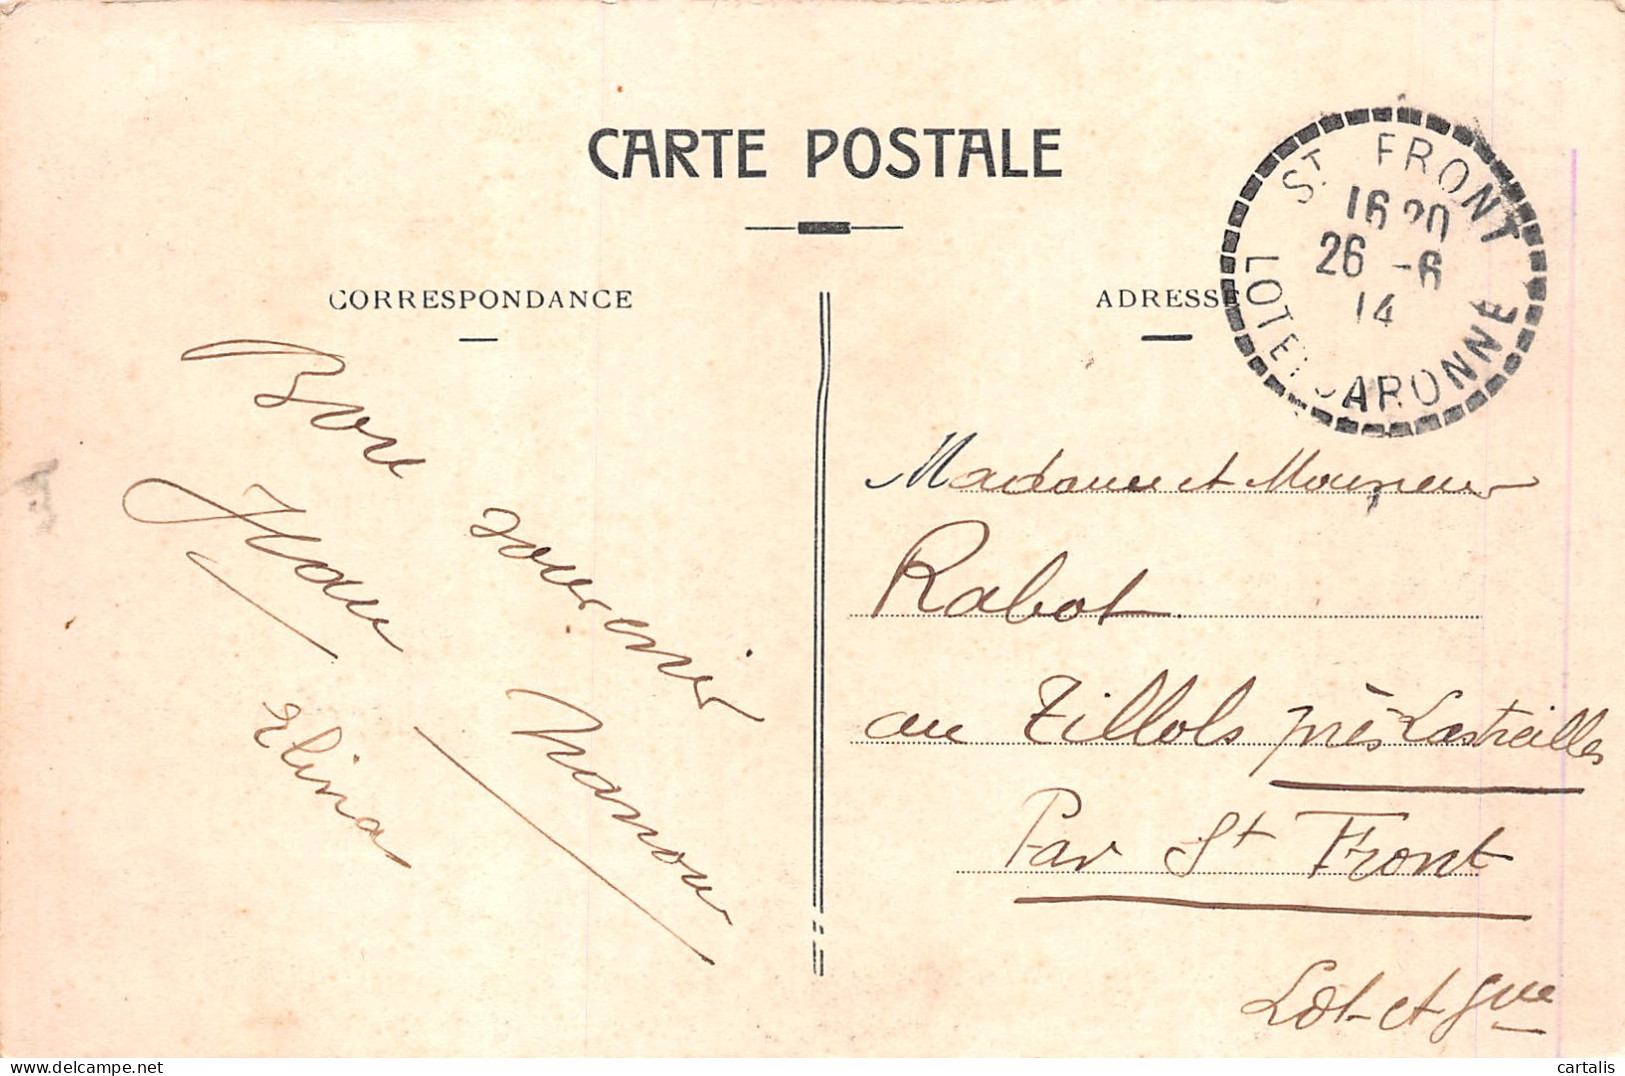 CARTE POSTALE
CORRESPONDANCE
ADRESSE
ST FRONT
16 20
26 -6
14
LOT ET GARONNE
Bon souvenir
Jean
Manou
Elina
Madame et Monsieur
Rabot
au Tillols près Lastreilles
Par St Front
Lot et Gne
cartalis